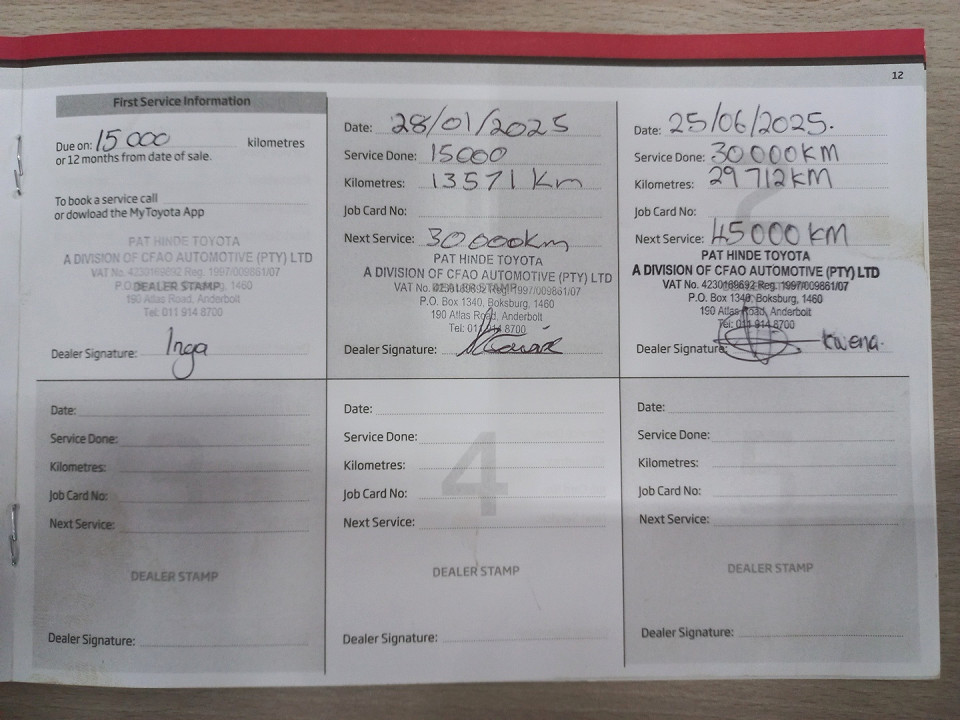 12
First Service Information
Due on: 15 000 kilometres
or 12 months from date of sale.
To book a service call
or dowload the MyToyota App
PAT HINDE TOYOTA
A DIVISION OF CFAO AUTOMOTIVE (PTY) LTD
VAT No. 4230169692 Reg. 1997/009861/07
P.O. 1460
DEALER STAMP
190 Atlas Road, Anderbolt
Tel: 011 914 8700
Dealer Signature: Inga
Date: 28/01/2025
Service Done: 15000
Kilometres: 13571 Km
Job Card No:
Next Service: 30000km
PAT HINDE TOYOTA
A DIVISION OF CFAO AUTOMOTIVE (PTY) LTD
VAT No. Reg. 1997/009861/07
P.O. Box 1340, Boksburg, 1460
190 Atlas Road, Anderbolt
Tel: 011 914 8700
Dealer Signature:
Date: 25/06/2025.
Service Done: 30000KM
Kilometres: 29712KM
Job Card No:
Next Service: 45000KM
PAT HINDE TOYOTA
A DIVISION OF CFAO AUTOMOTIVE (PTY) LTD
VAT No. 4230169692 Reg. 1997/009861/07
P.O. Box 1340, Boksburg, 1460
190 Atlas Road, Anderbolt
Tel: 011 914 8700
Dealer Signature: Kwena.
3
Date:
Service Done:
Kilometres:
Job Card No:
Next Service:
DEALER STAMP
Dealer Signature:
4
Date:
Service Done:
Kilometres:
Job Card No:
Next Service:
DEALER STAMP
Dealer Signature:
Date:
Service Done:
Kilometres:
Job Card No:
Next Service:
DEALER STAMP
Dealer Signature: